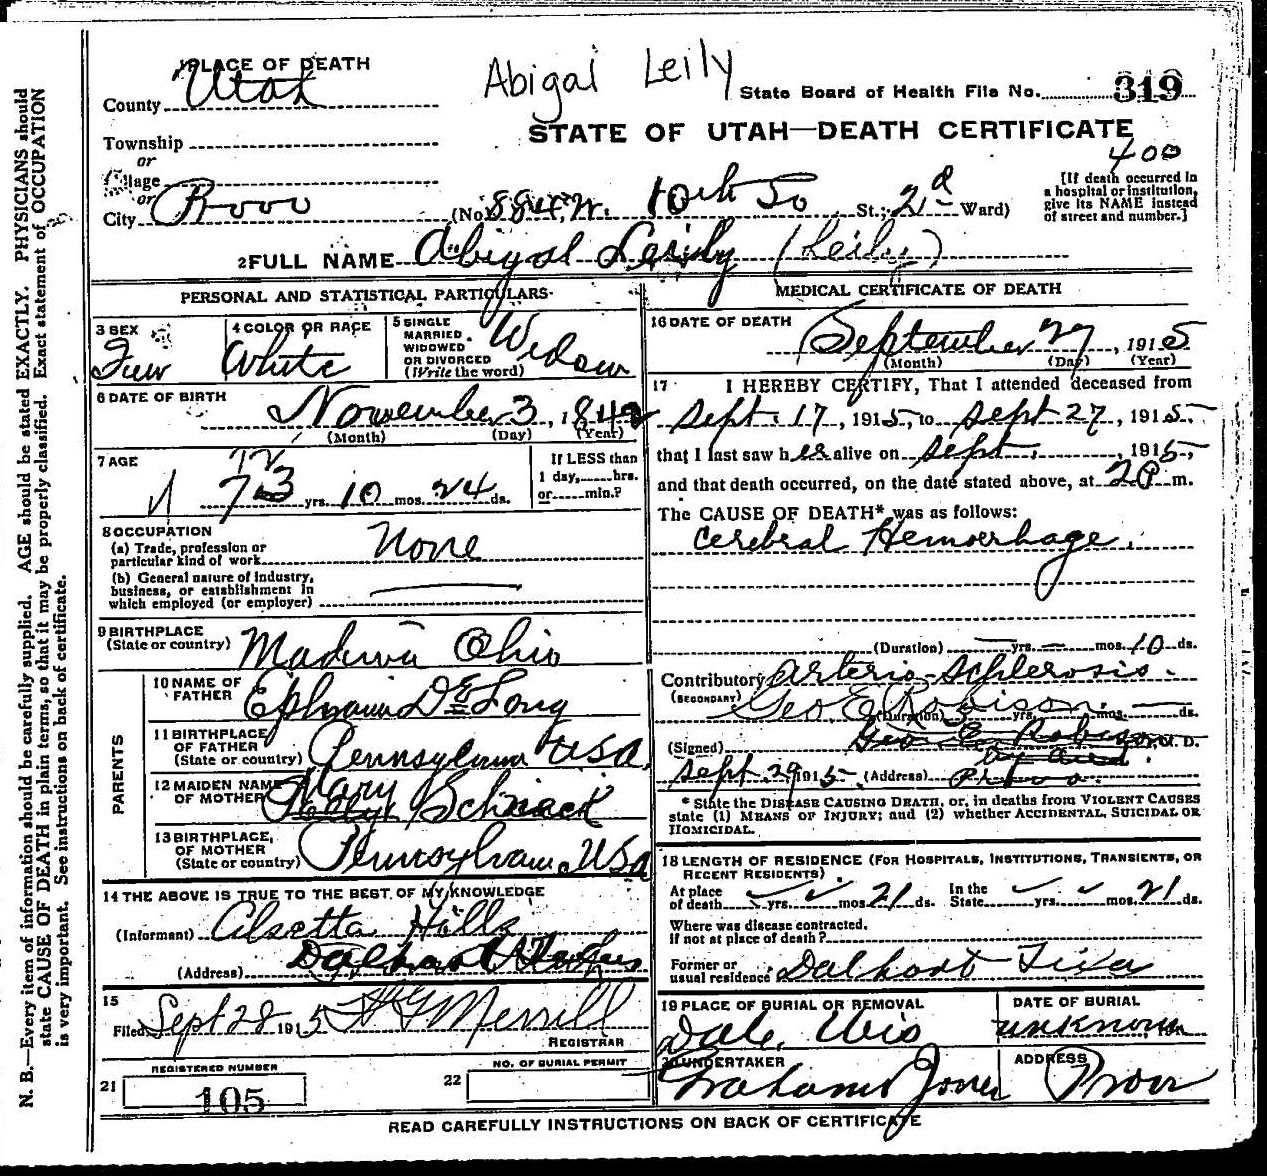 PLACE OF DEATH
County Utah
Abigal Leily
State Board of Health File No. 319
STATE OF UTAH—DEATH CERTIFICATE
Township
or
Village
or
City Provo
(No. 884 W. 10th So St.; 2d Ward)
400
[If death occurred in
a hospital or institution,
give its NAME instead
of street and number.]
2 FULL NAME Abigal Leily (Leily)
PERSONAL AND STATISTICAL PARTICULARS
3 SEX
4 COLOR OR RACE
White
5 SINGLE
MARRIED
WIDOWED
OR DIVORCED
(Write the word)
Widow
6 DATE OF BIRTH
November 3, 1842
(Month) (Day) (Year)
7 AGE
73 yrs. 10 mos. 24 ds.
If LESS than
1 day,......hrs.
or......min.?
8 OCCUPATION
(a) Trade, profession or
particular kind of work
None
(b) General nature of industry,
business, or establishment in
which employed (or employer)
9 BIRTHPLACE
(State or country)
Ohio
PARENTS
10 NAME OF
FATHER
Ephraim DeLong
11 BIRTHPLACE
OF FATHER
(State or country)
Pennsylvania USA
12 MAIDEN NAME
OF MOTHER
Mary Schrack
13 BIRTHPLACE
OF MOTHER
(State or country)
Pennsylvania USA
14 THE ABOVE IS TRUE TO THE BEST OF MY KNOWLEDGE
(Informant) Alsetta Hills
(Address) Dalhart Texas
15
Filed Sept 28 1915 Merrill
REGISTRAR
REGISTERED NUMBER
21 105
NO. OF BURIAL PERMIT
22
MEDICAL CERTIFICATE OF DEATH
16 DATE OF DEATH
September 27, 1915
(Month) (Day) (Year)
17 I HEREBY CERTIFY, That I attended deceased from
Sept. 17, 1915, to Sept 27, 1915
that I last saw her alive on Sept., 1915,
and that death occurred, on the date stated above, at m.
The CAUSE OF DEATH* was as follows:
Cerebral Hemorrhage.
(Duration) yrs. mos. 10 ds.
Contributory Arterio-Schlerosis.
(SECONDARY)
Geo E Robison
(Duration) yrs. mos. ds.
(Signed) Geo. E. Robison M. D.
Sept 29 1915 (Address) Provo.
* State the DISEASE CAUSING DEATH, or, in deaths from VIOLENT CAUSES
state (1) MEANS OF INJURY; and (2) whether ACCIDENTAL, SUICIDAL OR
HOMICIDAL.
18 LENGTH OF RESIDENCE (FOR HOSPITALS, INSTITUTIONS, TRANSIENTS, OR
RECENT RESIDENTS)
At place
of death yrs. mos. 21 ds.
In the
State yrs. mos. 21 ds.
Where was disease contracted.
If not at place of death?
Former or
usual residence Dalhart Texas
19 PLACE OF BURIAL OR REMOVAL
Dale, Wis
DATE OF BURIAL
unknown
20 UNDERTAKER
Graham Jones
ADDRESS
Provo
READ CAREFULLY INSTRUCTIONS ON BACK OF CERTIFICATE
N. B.—Every item of information should be carefully supplied. AGE should be stated EXACTLY. PHYSICIANS should
state CAUSE OF DEATH in plain terms, so that it may be properly classified. Exact statement of OCCUPATION
is very important. See instructions on back of certificate.